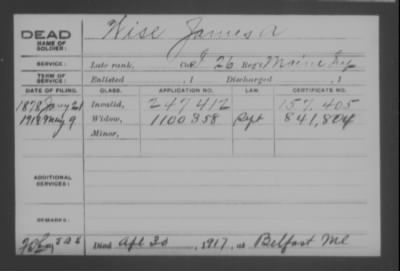 DEAD
NAME OF SOLDIER: Wise James A
SERVICE: Late rank, Co. I 26 Reg't Maine Inf
TERM OF SERVICE: Enlisted , 1 Discharged , 1
DATE OF FILING. CLASS. APPLICATION NO. LAW. CERTIFICATE NO.
1878 Jany 21 Invalid, 247412 157,405
1918 May 9 Widow, 1100358 Sept 841,804
Minor,
ADDITIONAL SERVICES:
REMARKS:
Died Apl 30 , 1917, at Belfast Me